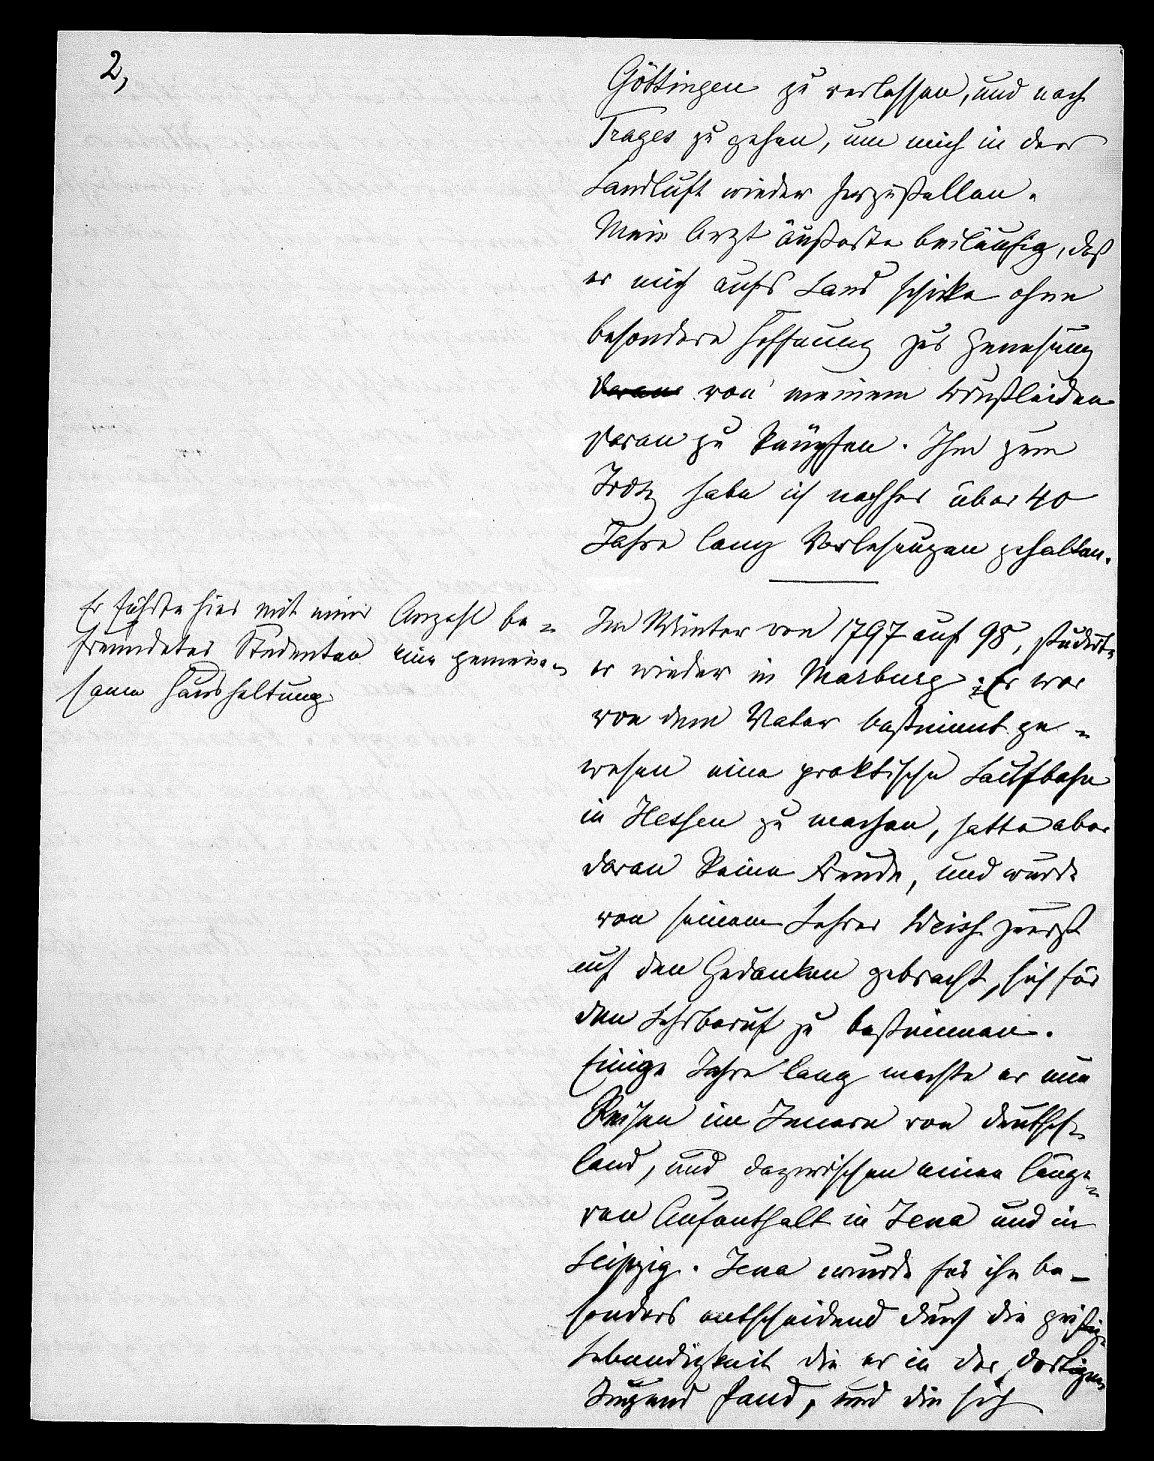 2,
Göttingen zu verlassen, und nach
Trages zu gehen, um mich in der
Landluft wieder herzustellen.
Mein Arzt äußerte beiläufig, daß
er mich aufs Land schicke ohne
besondere Hoffnung zur Genesung
daran von meinem Brustleiden
daran zu knüpfen. Ihm zum
Trotz habe ich nachher über 40
Jahre lang Vorlesungen gehalten.
Er führte hier mit einer Anzahl be=
freundeter Studenten eine gemein=
same Haushaltung
Im Winter von 1797 auf 98, studirte
er wieder in Marburg; Er war
von dem Vater bestimmt ge=
wesen eine praktische Laufbahn
in Hessen zu machen, hatte aber
daran keine Freude, und wurde
von seinem Lehrer Weis zuerst
auf den Gedanken gebracht, sich für
den Lehrberuf zu bestimmen.
Einige Jahre lang machte er nun
Reisen im Innern von Deutsch=
land, und dazwischen einen länge=
ren Aufenthalt in Jena und in
Leipzig. Jena wurde für ihn be-
sonders entscheidend durch die geistige
Lebendigkeit die er in der dortigen
Jugend fand, und die sich